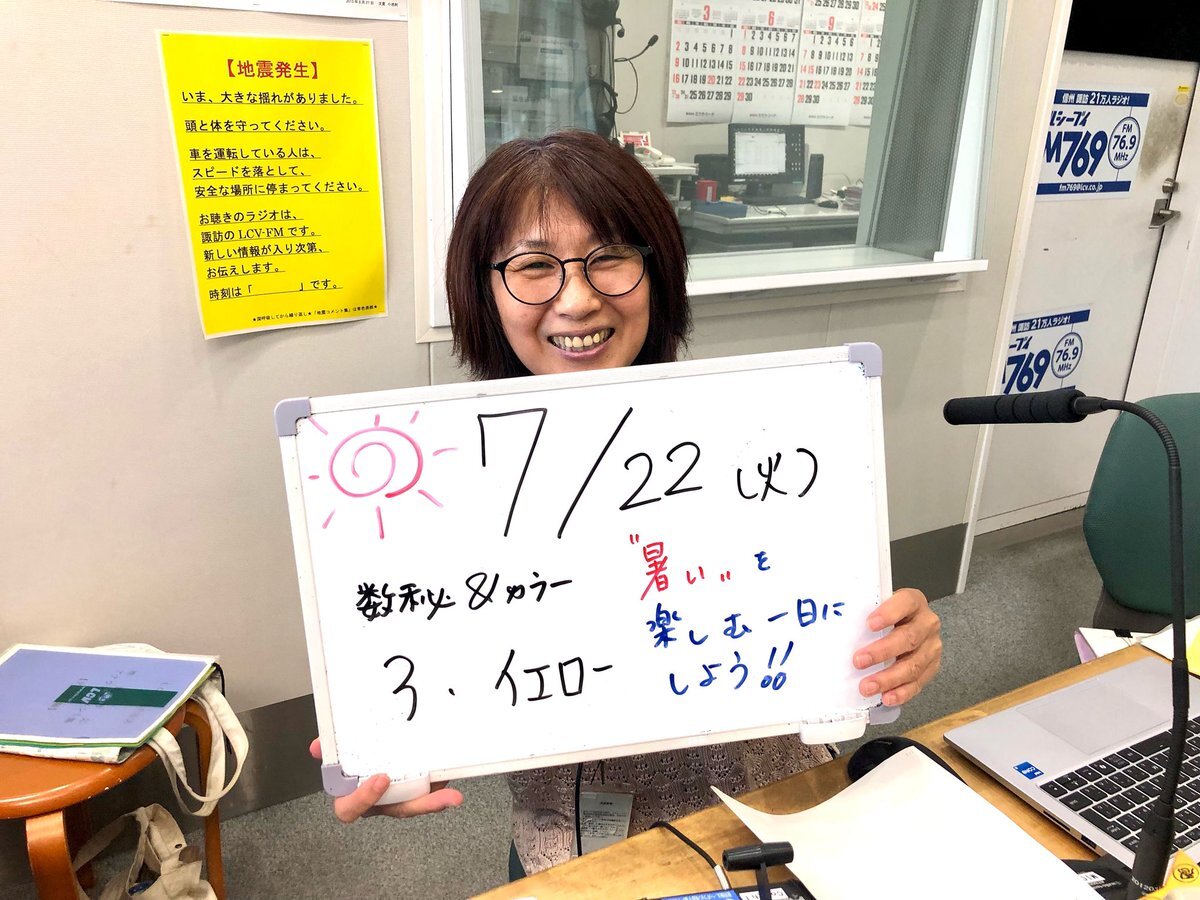 【地震発生】
いま、大きな揺れがありました。
頭と体を守ってください。
車を運転している人は、
スピードを落として、
安全な場所に停まってください。
お聴きのラジオは、
諏訪のLCV-FMです。
新しい情報が入り次第、
お伝えします。
時刻は「　　　」です。
7/22(火)
数秘&カラー
3. イエロー
"暑い"を
楽しむ一日に
しよう!!
信州 諏訪 21万人ラジオ!
エルシーブイ
FM769
FM
76.9
MHz
fm769@lcv.co.jp
信州 諏訪 21万人ラジオ!
769
FM
76.9
MHz
LCV
3
6
9